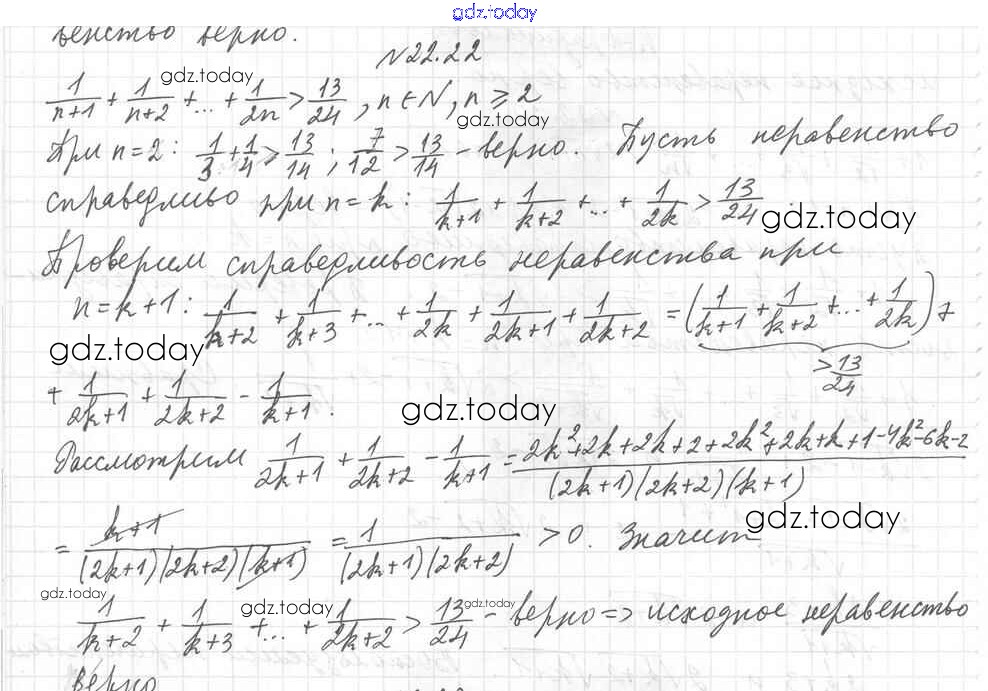 gdz.today
венство верно.
№22.22
1/(n+1) + 1/(n+2) + ... + 1/(2n) > 13/24, n ∈ N, n ⩾ 2
gdz.today
gdz.today
При n=2: 1/3 + 1/4 > 13/14; 7/12 > 13/14 - верно. Пусть неравенство
справедливо при n=k: 1/(k+1) + 1/(k+2) + ... + 1/(2k) > 13/24.
gdz.today
Проверим справедливость неравенства при
n=k+1: 1/(k+2) + 1/(k+3) + ... + 1/(2k) + 1/(2k+1) + 1/(2k+2) = (1/(k+1) + 1/(k+2) + ... + 1/(2k)) +
> 13/24
gdz.today
+ 1/(2k+1) + 1/(2k+2) - 1/(k+1).
gdz.today
Рассмотрим 1/(2k+1) + 1/(2k+2) - 1/(k+1) = (2k²+2k+2k+2+2k²+2k+k+1-4k²-6k-2)/((2k+1)(2k+2)(k+1))
gdz.today
= (k+1)/((2k+1)(2k+2)(k+1)) = 1/((2k+1)(2k+2)) > 0. Значит
gdz.today
gdz.today
gdz.today
1/(k+2) + 1/(k+3) + ... + 1/(2k+2) > 13/24 - верно => исходное неравенство
верно